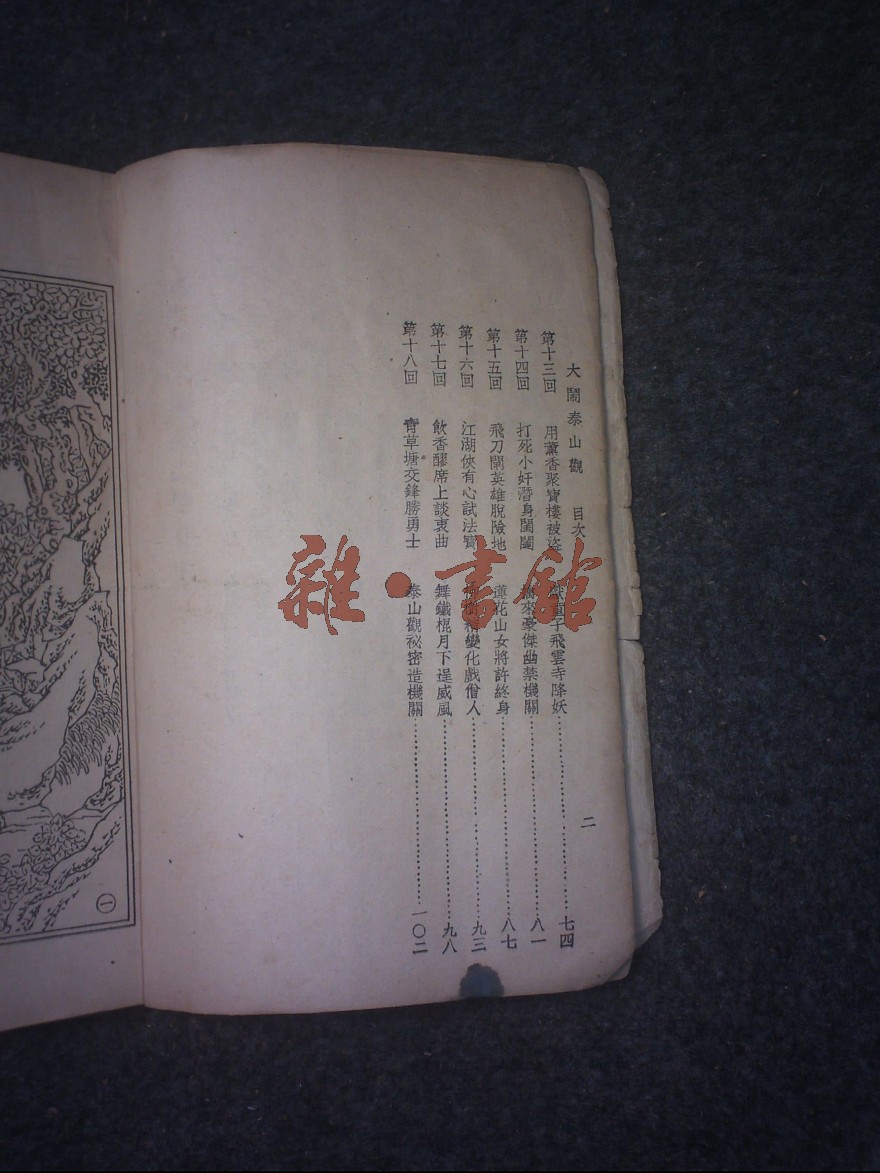 大鬧泰山觀 目次 二
第十三回 用薰香聚寶樓被盜 真子飛雲寺降妖 七四
第十四回 打死小奸潛身閨闥 來豪傑幽禁機關 八一
第十五回 飛刀鬧英雄脫險地 蓮花山女將許終身 八七
第十六回 江湖俠有心試法寶 精變化戲僧人 九三
第十七回 飲香醪席上談衷曲 舞鐵棍月下逞威風 九八
第十八回 青草塘交鋒勝勇士 泰山觀祕密造機關 一〇二
雜·書館
一